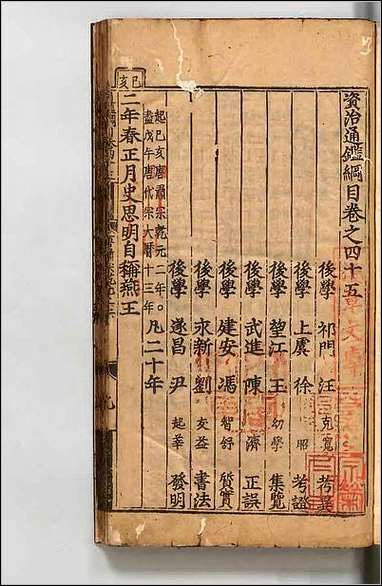 資治通鑑綱目卷之四十五
後學 祁門 汪 克寬 考異
後學 上虞 徐 昭 考證
後學 望江 王 幼學 集覽
後學 武進 陳 濟 正誤
後學 建安 馮 智舒 質實
後學 永新 劉 友益 書法
後學 遂昌 尹 起莘 發明
起己亥唐肅宗乾元二年。
盡戊午唐代宗大曆十三年
凡二十年
己亥
二年春正月史思明自稱燕王